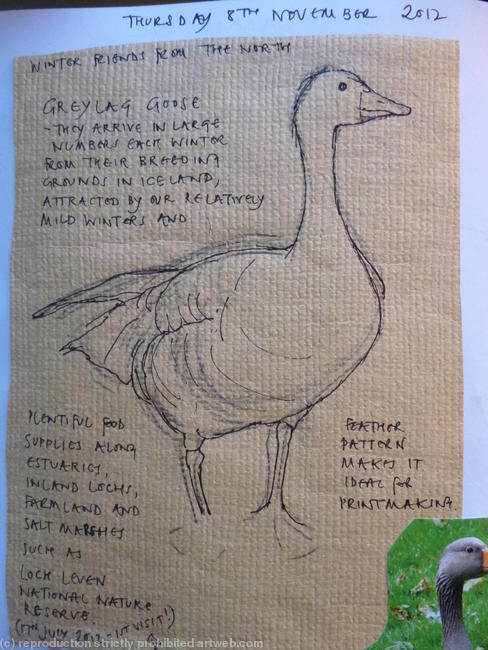 THURSDAY 8TH NOVEMBER 2012
WINTER FRIENDS FROM THE NORTH
GREYLAG GOOSE
- THEY ARRIVE IN LARGE
NUMBERS EACH WINTER
FROM THEIR BREEDING
GROUNDS IN ICELAND,
ATTRACTED BY OUR RELATIVELY
MILD WINTERS AND
PLENTIFUL FOOD
SUPPLIES ALONG
ESTUARIES,
INLAND LOCHS,
FARMLAND AND
SALT MARSHES
SUCH AS
LOCH LEVEN
NATIONAL NATURE
RESERVE.
JULY 2012 - 1ST VISIT!)
FEATHER
PATTERN
MAKES IT
IDEAL FOR
PRINTMAKING.
(c) reproduction strictly prohibited artweb.com